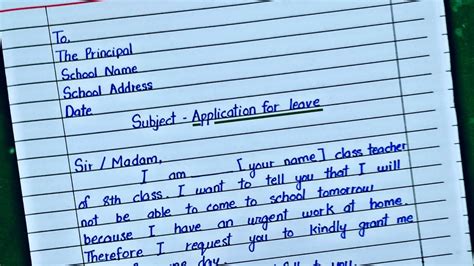 To,
The Principal
School Name
School Address
Date
Subject - Application for leave
Sir / Madam,
I am ____ [your name] class teacher
of 8th class. I want to tell you that I will
not be able to come to school tomorrow
because I have an urgent work at home.
Therefore I request you to kindly grant me
one day.